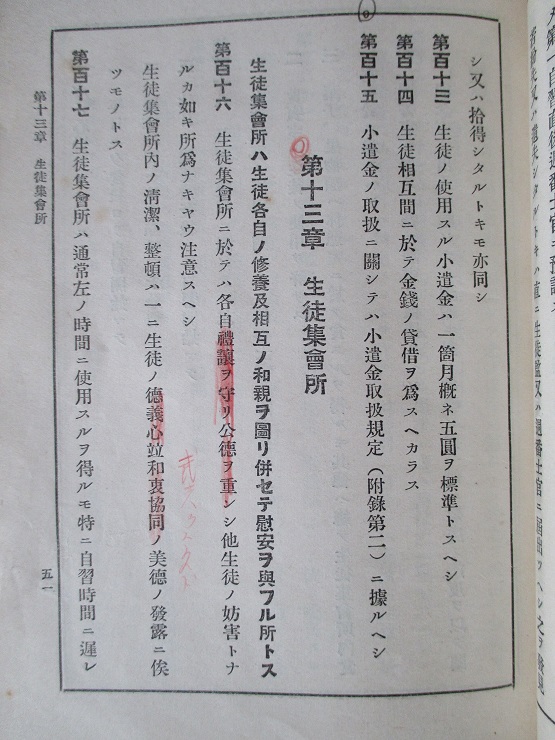 シ又ハ拾得シタルトキモ亦同シ
第百十三 生徒ノ使用スル小遣金ハ一箇月槪ネ五圓ヲ標準トスヘシ
第百十四 生徒相互間ニ於テ金錢ノ貸借ヲ爲スヘカラス
第百十五 小遣金ノ取扱ニ關シテハ小遣金取扱規定(附錄第二)ニ據ルヘシ
第十三章 生徒集會所
生徒集會所ハ生徒各自ノ修養及相互ノ和親ヲ圖リ併セテ慰安ヲ與フル所トス
第百十六 生徒集會所ニ於テハ各自禮讓ヲ守リ公德ヲ重ンシ他生徒ノ妨害トナ
ルカ如キ所爲ナキヤウ注意スヘシ
生徒集會所內ノ淸潔、整頓ハ一ニ生徒ノ德義心竝和衷協同ノ美德ノ發露ニ俟
ツモノトス
第百十七 生徒集會所ハ通常左ノ時間ニ使用スルヲ得ルモ特ニ自習時間ニ遲レ
第十三章 生徒集會所
五一